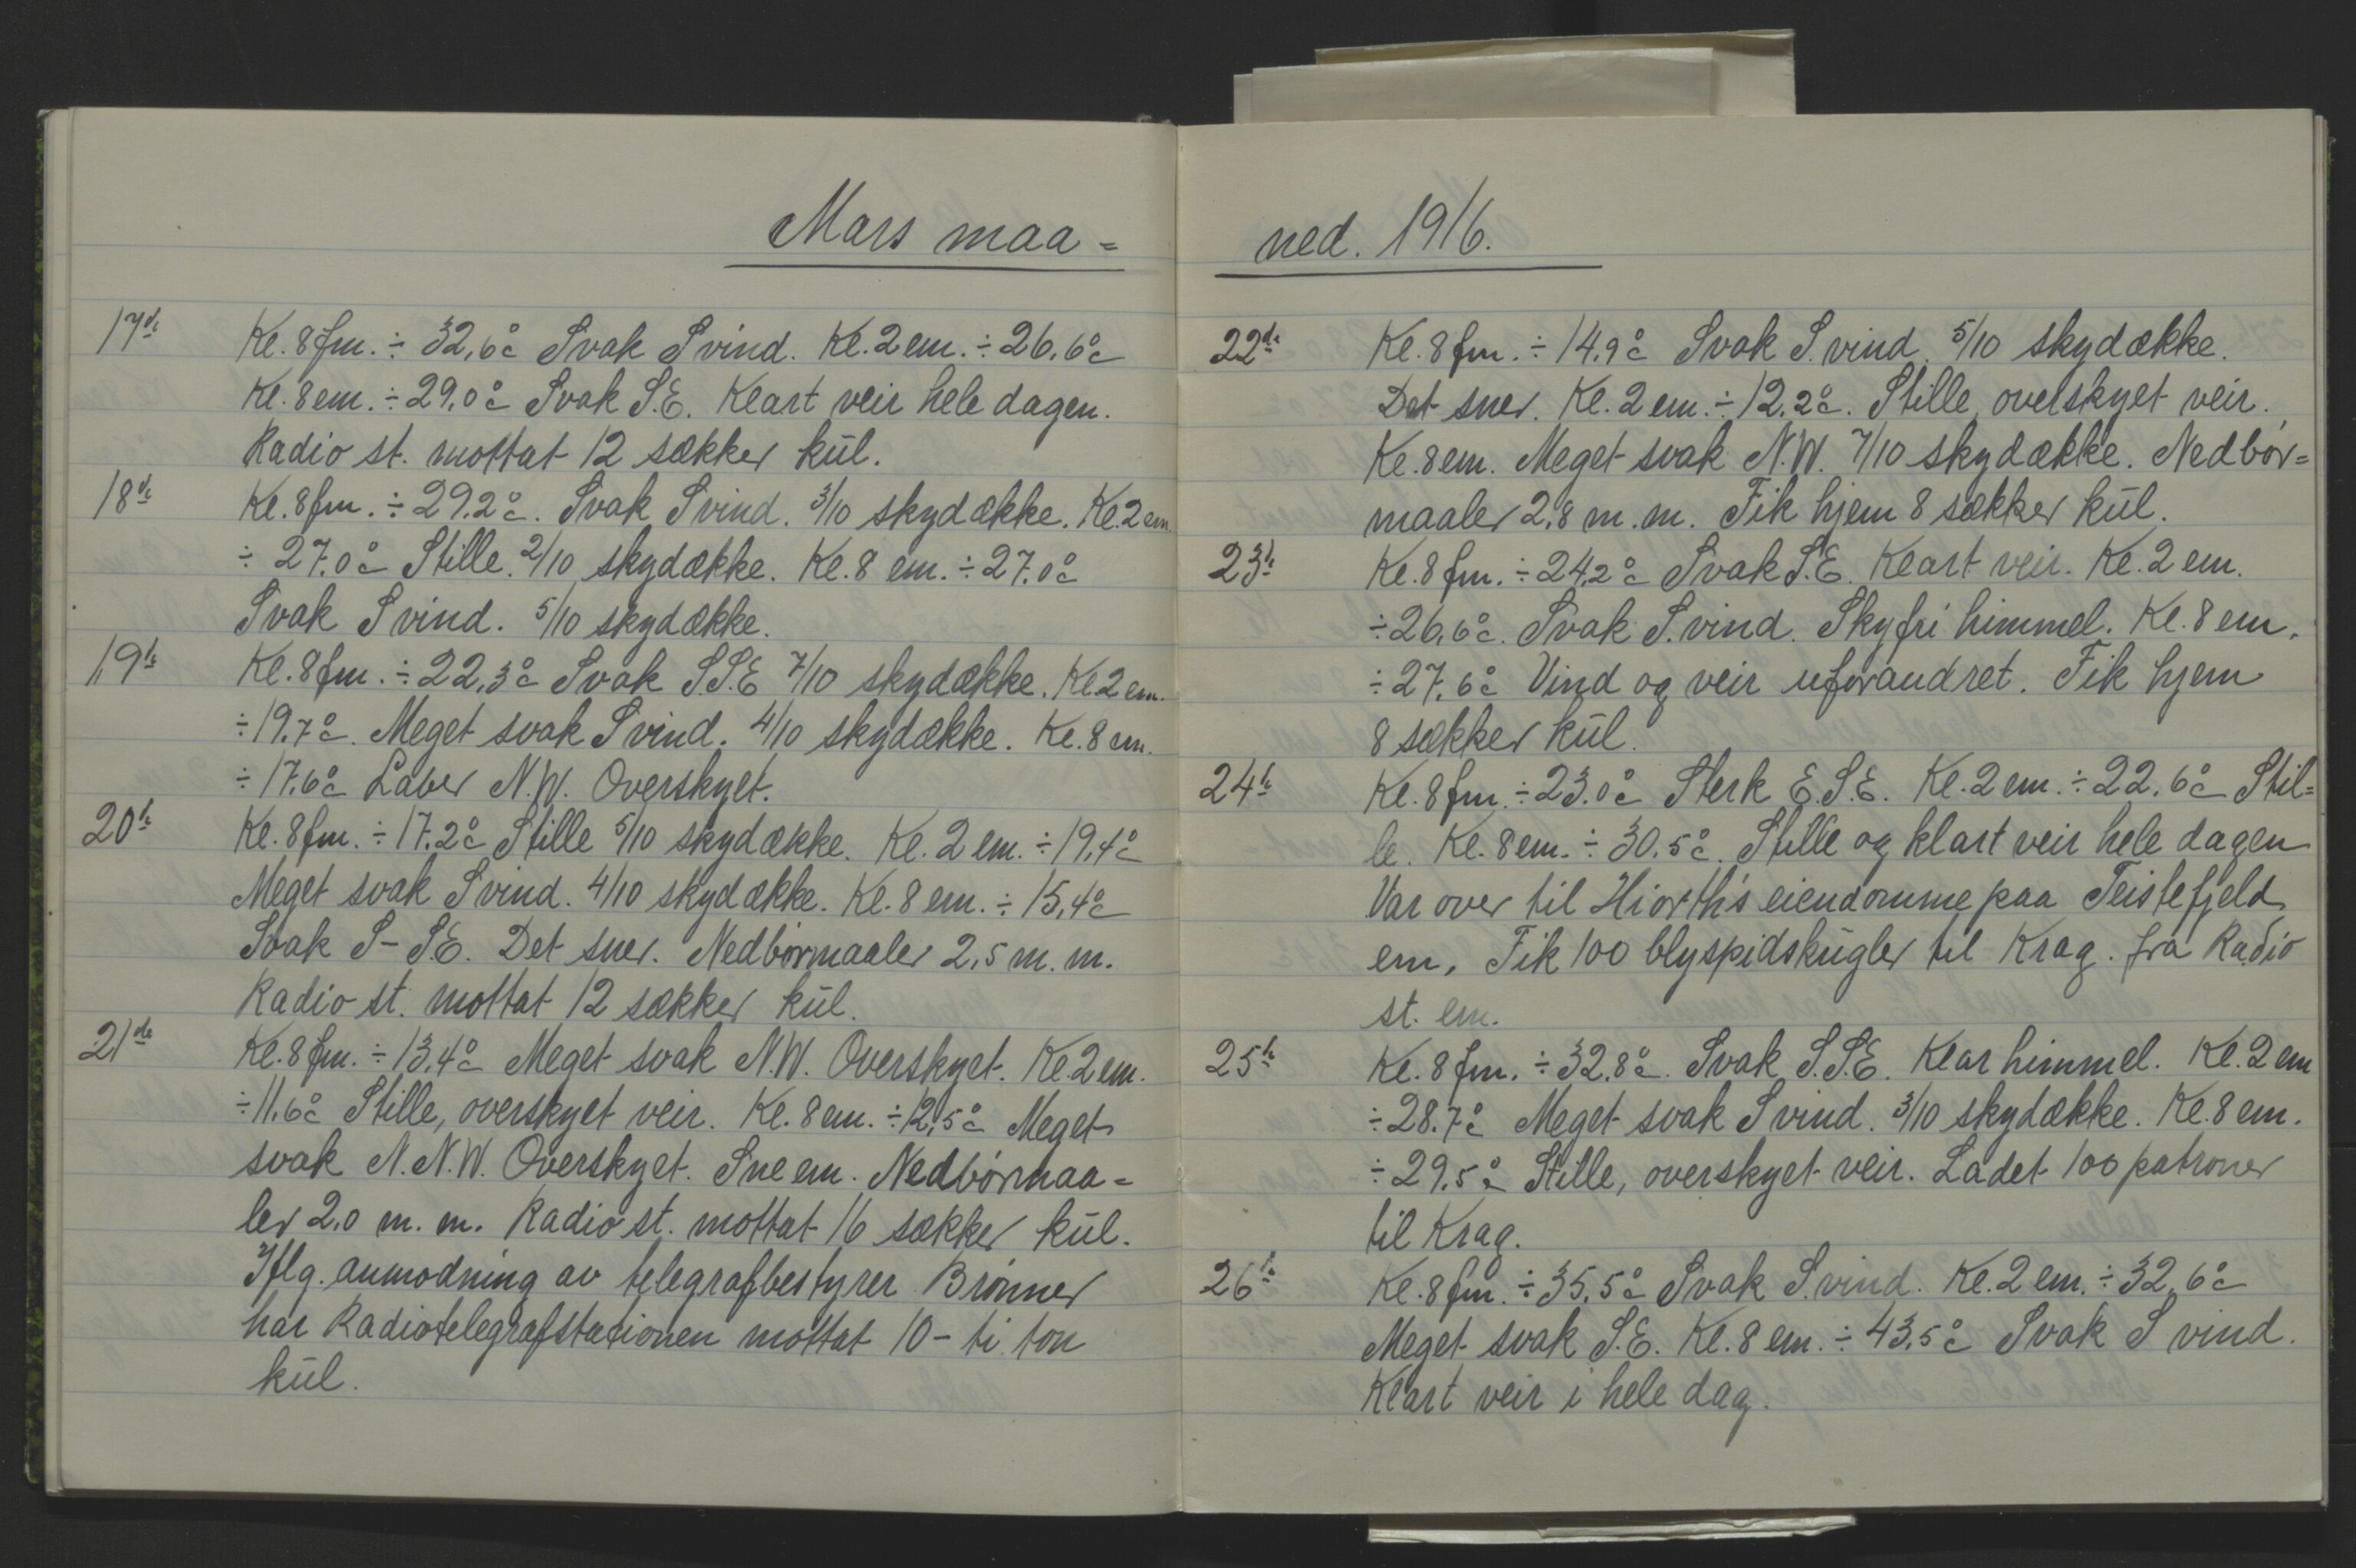 Mars maa=
17de Kl. 8 fm. ÷ 32,6°c Svak S vind. Kl. 2 em. ÷ 26,6°c
Kl. 8 em. ÷ 29,0°c Svak S.E. Klart veir hele dagen.
Radio st. mottat 12 sækker kŭl.
18de Kl. 8 fm. ÷ 29.2°c. Svak S vind. 3/10 skydække. Kl. 2 em.
÷ 27.0°c Stille. 2/10 skydække. Kl. 8 em. ÷ 27.0°c
Svak S vind. 5/10 skydække.
19de Kl. 8 fm. ÷ 22,3°c Svak S.S.E 7/10 skydække. Kl. 2 em.
÷ 19.7°c. Meget svak S vind. 4/10 skydække. Kl. 8 em.
÷ 17.6°c Laber N.W. Overskyet.
20de Kl. 8 fm. ÷ 17.2°c Stille 5/10 skydække. Kl. 2 em. ÷ 19,4°c
Meget svak S vind. 4/10 skydække. Kl. 8 em. ÷ 15,4°c
Svak S - S.E. Det sner. Nedbørmaaler 2,5 m.m.
Radio st. mottat 12 sækker kŭl.
21de Kl. 8 fm. ÷ 13,4°c Meget svak N.W. Overskyet. Kl. 2 em.
÷ 11.6°c Stille, overskyet veir. Kl. 8 em. ÷ 12,5°c Meget
svak N.N.W. Overskyet. Sne em. Nedbørmaa=
ler 2.0 m.m. Radio st. mottat 16 sækker kŭl.
Iflg. anmodning av telegrafbestyrer Brønner
har Radiotelegrafstationen mottat 10 - ti ton
kŭl.
ned. 1916.
22de Kl. 8 fm. ÷ 14.9°c Svak S. vind. 5/10 skydække.
Det sner. Kl. 2 em. ÷ 12.2°c. Stille, overskyet veir.
Kl. 8 em. Meget svak N.W. 7/10 skydække. Nedbør=
maaler 2,8 m.m. Fik hjem 8 sækker kŭl.
23de Kl. 8 fm. ÷ 24,2°c Svak S.E. Klart veir. Kl. 2 em.
÷ 26,6°c. Svak S. vind. Skyfri himmel. Kl. 8 em.
÷ 27.6°c Vind og veir uforandret. Fik hjem
8 sækker kŭl.
24de Kl. 8 fm. ÷ 23.0°c Sterk E.S.E. Kl. 2 em. ÷ 22.6°c Stil=
le. Kl. 8 em. ÷ 30.5°c. Stille og klart veir hele dagen
Var over til Hiorth's eiendomme paa Teistefjeld
em. Fik 100 blyspidskŭgler til Krag. fra Radio
st. em.
25de Kl. 8 fm. ÷ 32.8°c. Svak S.S.E. Klar himmel. Kl. 2 em
÷ 28.7°c Meget svak S vind. 3/10 skydække. Kl. 8 em.
÷ 29.5°c Stille, overskyet veir. Ladet 100 patroner
til Krag.
26de Kl. 8 fm. ÷ 35,5°c Svak S. vind. Kl. 2 em. ÷ 32,6°c
Meget svak S.E. Kl. 8 em. ÷ 43,5°c Svak S vind.
Klart veir i hele dag.